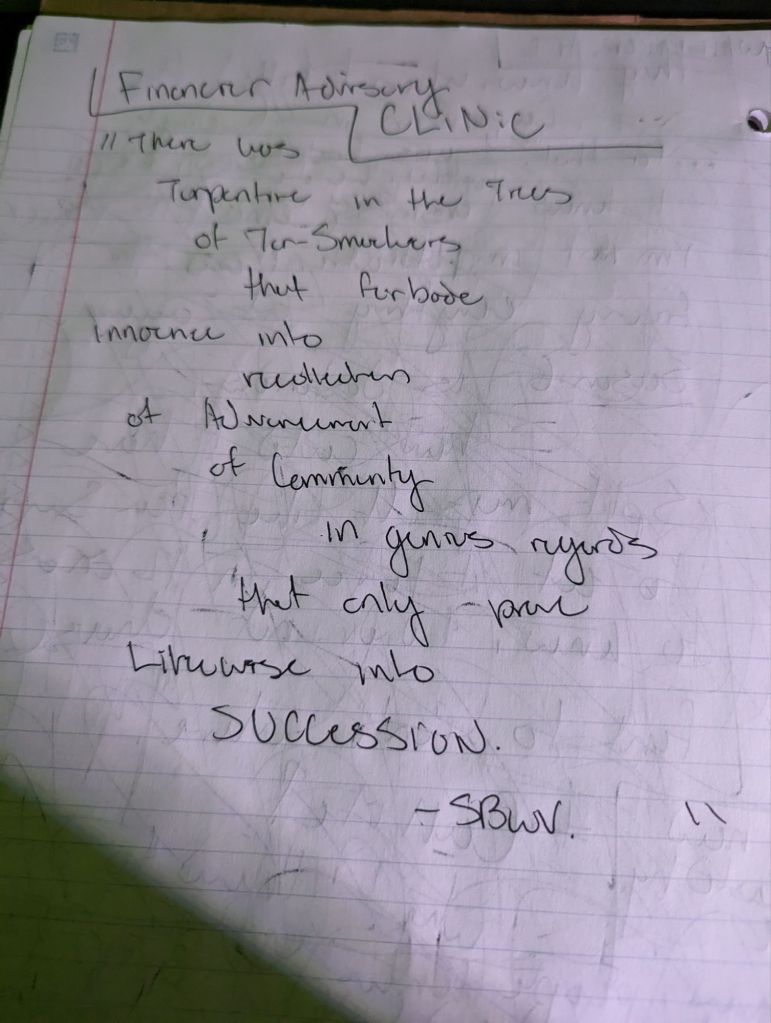 Financier Advisory
CLiNiC
"There was
Turpentine in the Trees
of Tar-Smockers
that forbode
Innocence into
recollection
of Advancement
of Community
in genius regards
that only - prove
Likewise into
SUCCESSION.
- SBWV. "